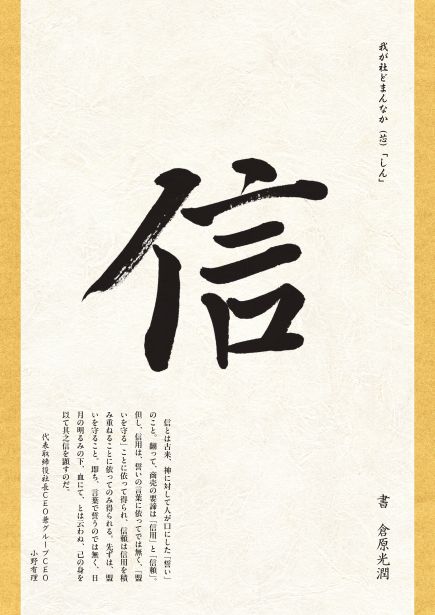 我が社どまんなか（芯）「しん」
信
信とは古来、神に対して人が口にした「誓い」
のこと。翻って、商売の要諦は「信用」と「信頼」。
但し、信用は、誓いの言葉に依ってでは無く、「盟
いを守る」ことに依って得られ、信頼は信用を積
み重ねることに依ってのみ得られる。先ずは、盟
いを守ること。即ち、言葉で誓うのでは無く、日
月の明るみの下、血にて、とは云わぬ、己の身を
以て其之信を顕すのだ。
代表取締役社長CEO兼グループCEO
小野有理
書 倉原光潤